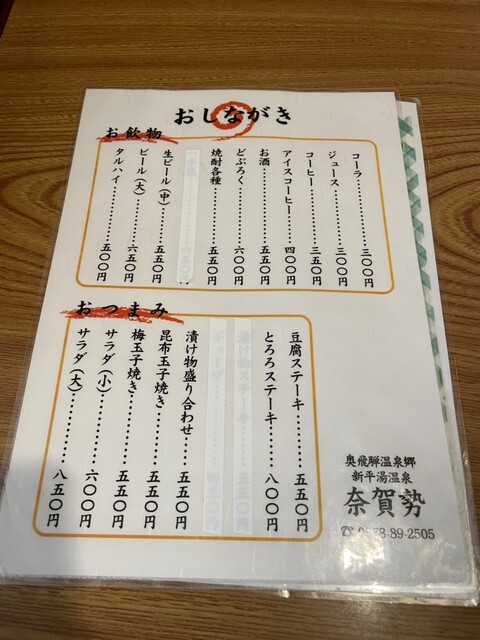 おしながき
お飲物
コーラ……………三〇〇円
ジュース……………三〇〇円
コーヒー……………三五〇円
アイスコーヒー……四〇〇円
お酒……………五五〇円
どぶろく……………六〇〇円
焼酎各種……………五五〇円
生ビール(中)……………五五〇円
ビール(大)……………六五〇円
タルハイ……………五〇〇円
おつまみ
豆腐ステーキ……………五五〇円
とろろステーキ……………八〇〇円
漬け物ステーキ
漬け物盛り合わせ……五五〇円
昆布玉子焼き……………五五〇円
梅玉子焼き……………五五〇円
サラダ(小)……………六〇〇円
サラダ(大)……………八五〇円
奥飛騨温泉郷
新平湯温泉
奈賀勢
☎ 0578-89-2505